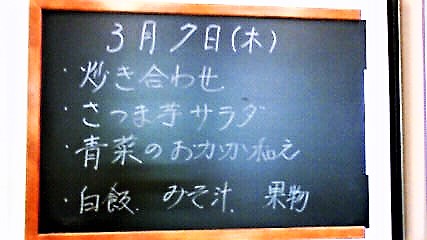 3月7日(木)
・炒き合わせ
・さつま芋サラダ
・青菜のおかか和え
・白飯. みそ汁. 果物